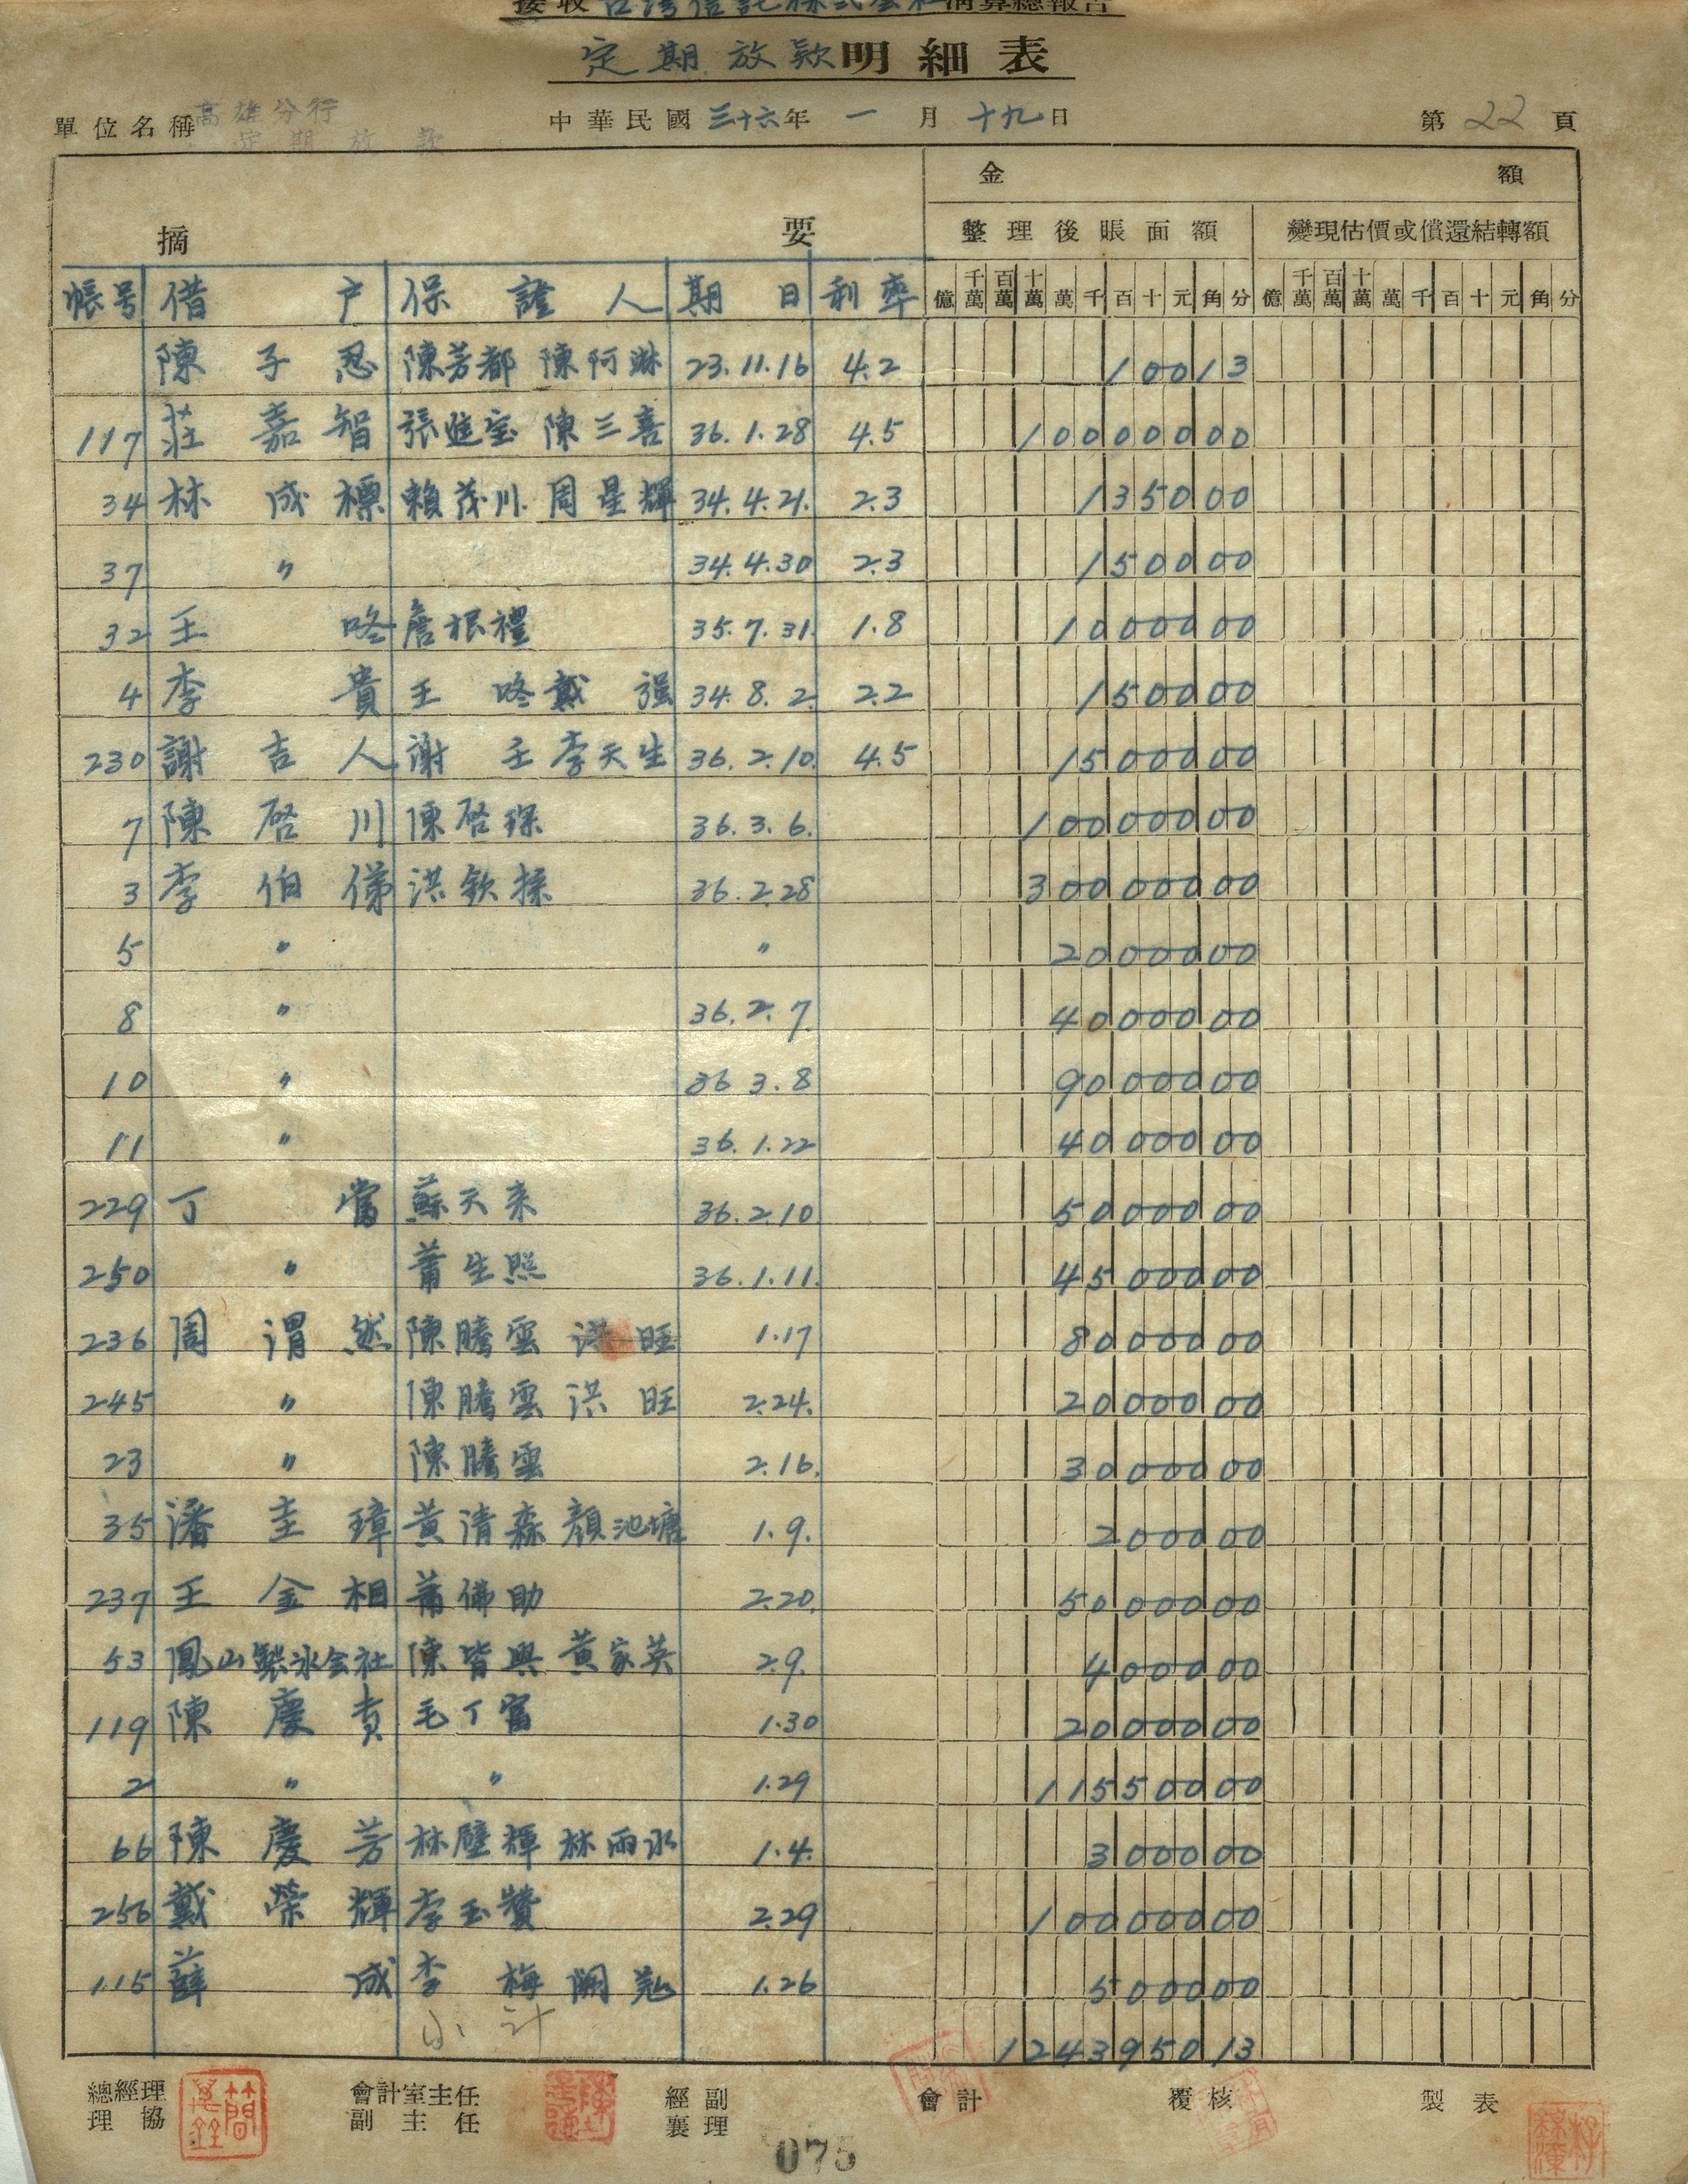 接收台灣信託株式会社清算總報告
定期放款明細表
單位名稱 高雄分行 定期放款 中華民國三十六年一月十九日 第22頁
摘要 金額
整理後賬面額 變現估價或償還結轉額
帳号 借户 保證人 期日 利率 億 千萬 百萬 十萬 萬 千 百 十 元 角 分 億 千萬 百萬 十萬 萬 千 百 十 元 角 分
陳子忍 陳芳都 陳阿淋 23.11.16 4.2 10013
117 莊嘉智 張進宝 陳三喜 36.1.28 4.5 10000000
34 林成標 賴茂川 周星輝 34.4.21. 2.3 135000
37 〃 34.4.30 2.3 150000
32 王咚 詹根禮 35.7.31. 1.8 1000000
4 李貴 王咚 戴强 34.8.2. 2.2 150000
230 謝吉人 謝壬 李天生 36.2.10. 4.5 1500000
7 陳啓川 陳啓琛 36.3.6. 10000000
3 李伯偉 洪欽 36.2.28 30000000
5 〃 〃 2000000
8 〃 36.2.7 4000000
10 〃 36 3.8 9000000
11 〃 36.1.22 4000000
229 丁當 蘇天來 36.2.10 5000000
250 〃 蕭生照 36.1.11. 4500000
236 周渭然 陳騰雲 洪旺 1.17 8000000
245 〃 陳騰雲 洪旺 2.24. 2000000
23 〃 陳騰雲 2.16. 3000000
35 潘圭璋 黃清森 顏池塘 1.9. 200000
237 王金相 蕭佛助 2.20. 5000000
53 鳳山製氷会社 陳皆興 黃家英 2.9. 400000
119 陳慶貴 毛丁富 1.30 2000000
2 〃 〃 1.29 11550000
66 陳慶芳 林壁輝 林雨水 1.4. 300000
256 戴榮輝 李玉贊 2.29 10000000
115 薛成 李梅 1.26 500000
小計 124395013
總經理 會計室主任 經副 會計 覆核 製表
理協 副主任 襄理
075